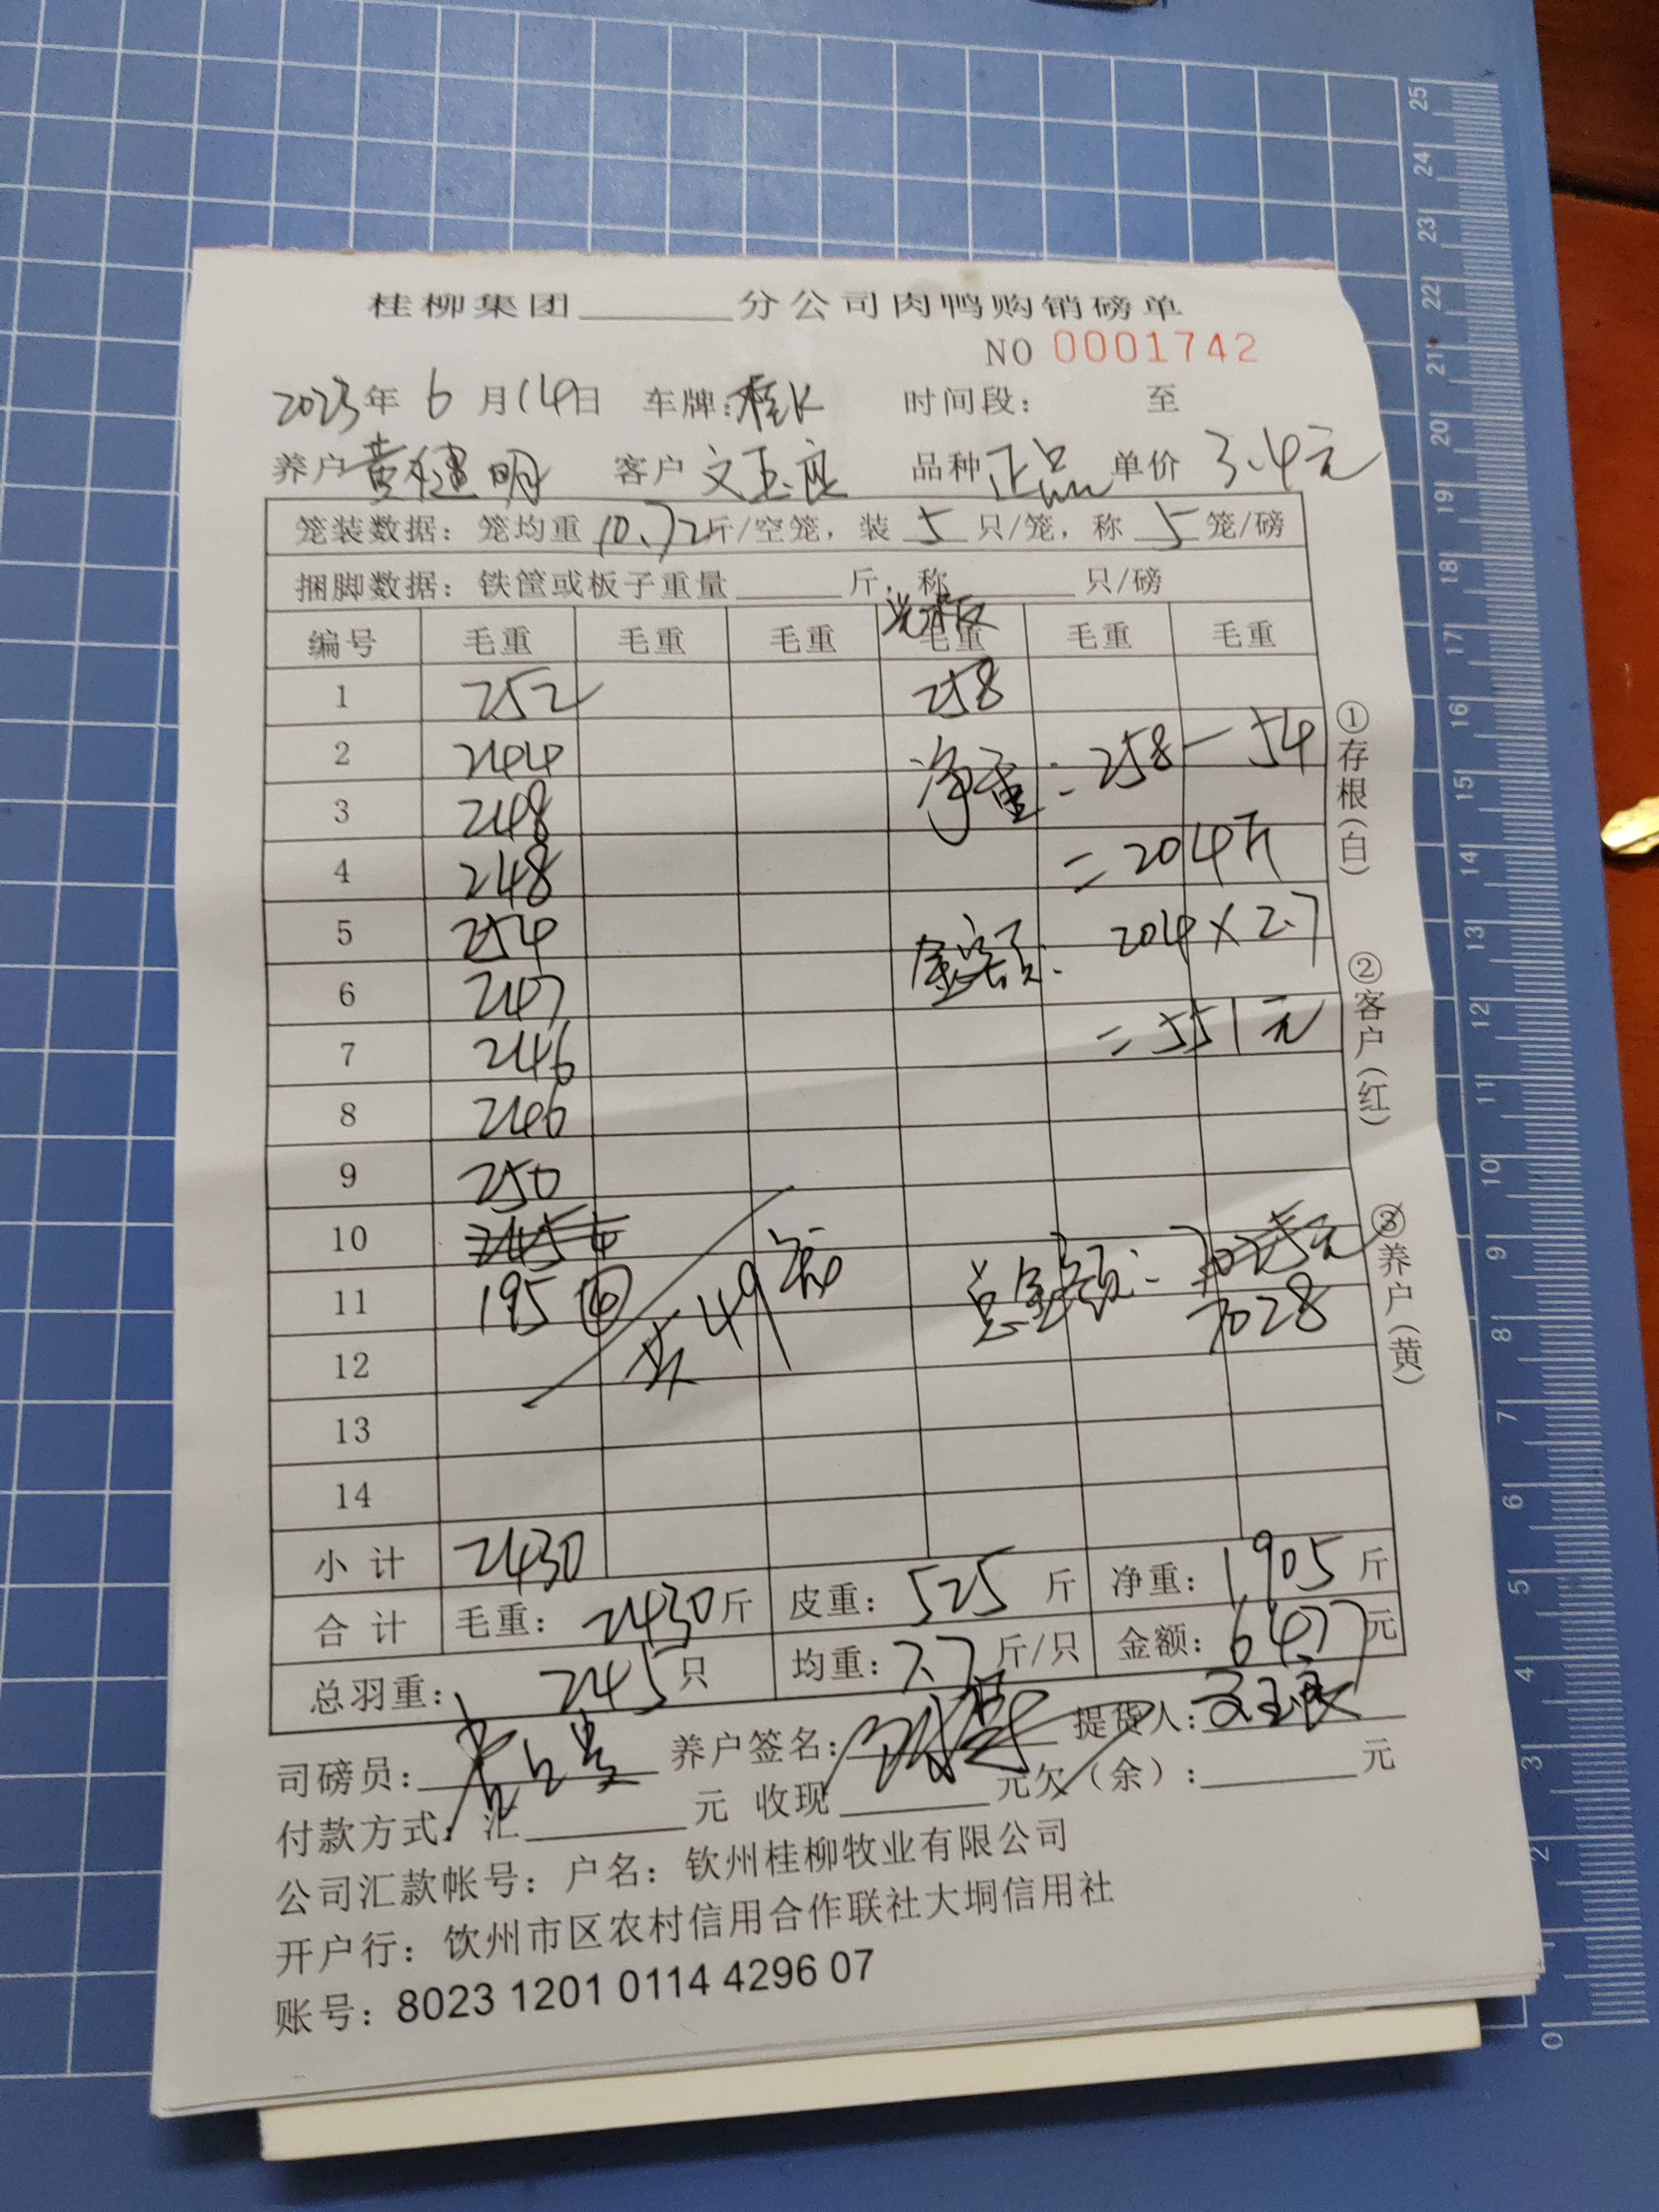 桂柳集团______分公司肉鸭购销磅单
NO 0001742
2023年 6 月14日 车牌: 时间段: 至
养户 黄健明 客户 品种 正品 单价 3.4元
笼装数据: 笼均重 10.72斤/空笼, 装 5 只/笼, 称 5 笼/磅
捆脚数据: 铁筐或板子重量______斤, 称______只/磅
编号 毛重 毛重 毛重 毛重 毛重 毛重
1 252 258
2 244 净重: 258-54
3 248
4 248 =204斤
5 254 金额: 204×2.7
6 247
7 246 =551元
8 246
9 250
10
11 195 ④ 共49 总金额: 7028
12
13
14
小计 2430
合计 毛重: 2430斤 皮重: 525 斤 净重: 1905 斤
总羽重: 245只 均重: 7.7 斤/只 金额: 6477元
司磅员: 养户签名: 提货人:
付款方式: 汇______元 收现______元欠(余):______元
公司汇款帐号: 户名: 钦州桂柳牧业有限公司
开户行: 钦州市区农村信用合作联社大垌信用社
账号: 8023 1201 0114 4296 07
①存根(白) ②客户(红) ③养户(黄)
25
24
23
22
21
20
19
18
17
16
15
14
13
12
11
10
9
8
7
6
5
4
3
2
1
0